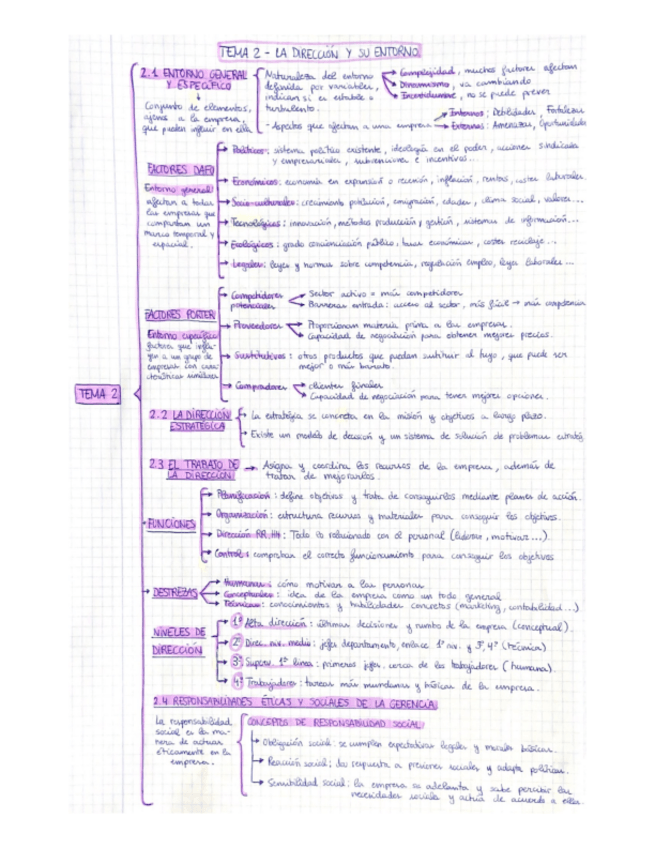 TEMA 2 - LA DIRECCIÓN Y SU ENTORNO
2.1 ENTORNO GENERAL
Y ESPECÍFICO
Conjunto de elementos,
ajenos a la empresa,
que pueden influir en ella
Naturaleza del entorno
definida por variables,
indican si es estable o
turbulento.
Complejidad, muchos factores afectan
Dinamismo, va cambiando
Incertidumbre, no se puede prever
- Aspectos que afectan a una empresa
Internos: Debilidades, Fortalezas
Externos: Amenazas, Oportunidades
FACTORES DAFO
Entorno general:
afectan a todas
las empresas que
comparten un
marco temporal y
espacial.
Políticos: sistema político existente, ideología en el poder, acciones sindicales
y empresariales, subvenciones e incentivos...
Económicos: economía en expansión o recesión, inflación, rentas, costes laborales
Socio-culturales: crecimiento población, emigración, edades, clima social, valores...
Tecnológicos: innovación, métodos producción y gestión, sistemas de información...
Ecológicos: grado concienciación público, tasas económicas, costes reciclaje...
Legales: leyes y normas sobre competencia, regulación empleo, leyes laborales...
FACTORES PORTER
Entorno específico
factores que influ-
yen a un grupo de
empresas con cara-
cterísticas similares
Competidores
potenciales
Sector activo = más competidores
Barreras entrada: acceso al sector, más fácil → más competencia
Proveedores
Proporcionan materia prima a las empresas.
Capacidad de negociación para obtener mejores precios.
Sustitutivos: otros productos que puedan sustituir al tuyo, que puede ser
mejor o más barato.
Compradores
clientes finales
Capacidad de negociación para tener mejores opciones.
TEMA 2
2.2 LA DIRECCIÓN
ESTRATÉGICA
La estrategia se concreta en la misión y objetivos a largo plazo.
Existe un modelo de decisión y un sistema de solución de problemas estratég
2.3 EL TRABAJO DE
LA DIRECCIÓN
→ Asigna y coordina los recursos de la empresa, además de
tratar de mejorarlos.
FUNCIONES
Planificación: define objetivos y trata de conseguirlos mediante planes de acción.
Organización: estructura recursos y materiales para conseguir los objetivos.
Dirección RR.HH: Todo lo relacionado con el personal (líderes, motivar...).
Control: comprobar el correcto funcionamiento para conseguir los objetivos
DESTREZAS
Humanas: cómo motivan a las personas.
Conceptuales: idea de la empresa como un todo general
Técnicas: conocimientos y habilidades concretos (marketing, contabilidad...)
NIVELES DE
DIRECCIÓN
1º Alta dirección: últimas decisiones y rumbo de la empresa (conceptual).
2º Direc. nv. medio: jefes departamento, enlace 1º nv. y 3º, 4º (técnica)
3º Superv. 1ª línea: primeros jefes, cerca de los trabajadores (humana).
4º Trabajadores: tareas más mundanas y básicas de la empresa.
2.4 RESPONSABILIDADES ÉTICAS Y SOCIALES DE LA GERENCIA
La responsabilidad
social es la ma-
nera de actuar
éticamente en la
empresa.
CONCEPTOS DE RESPONSABILIDAD SOCIAL
Obligación social: se cumplen expectativas legales y morales básicas.
Reacción social: da respuesta a presiones sociales y adapta políticas.
Sensibilidad social: la empresa se adelanta y sabe percibir las
necesidades sociales y actúa de acuerdo a ellas.